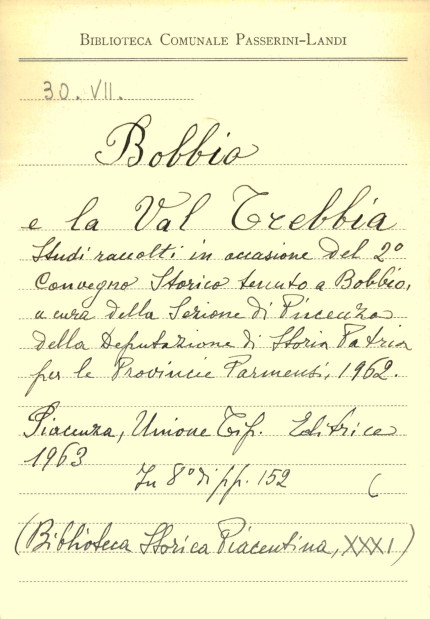 BIBLIOTECA COMUNALE PASSERINI-LANDI
30. VII.
Bobbio
e la Val Trebbia
Studi raccolti in occasione del 2º
Convegno Storico tenuto a Bobbio,
a cura della Sezione di Piacenza
della Deputazione di Storia Patria
per le Provincie Parmensi, 1962.
Piacenza, Unione Tip. Editrice
1963
In 8º di pp. 152 (
(Biblioteca Storica Piacentina, XXXI)